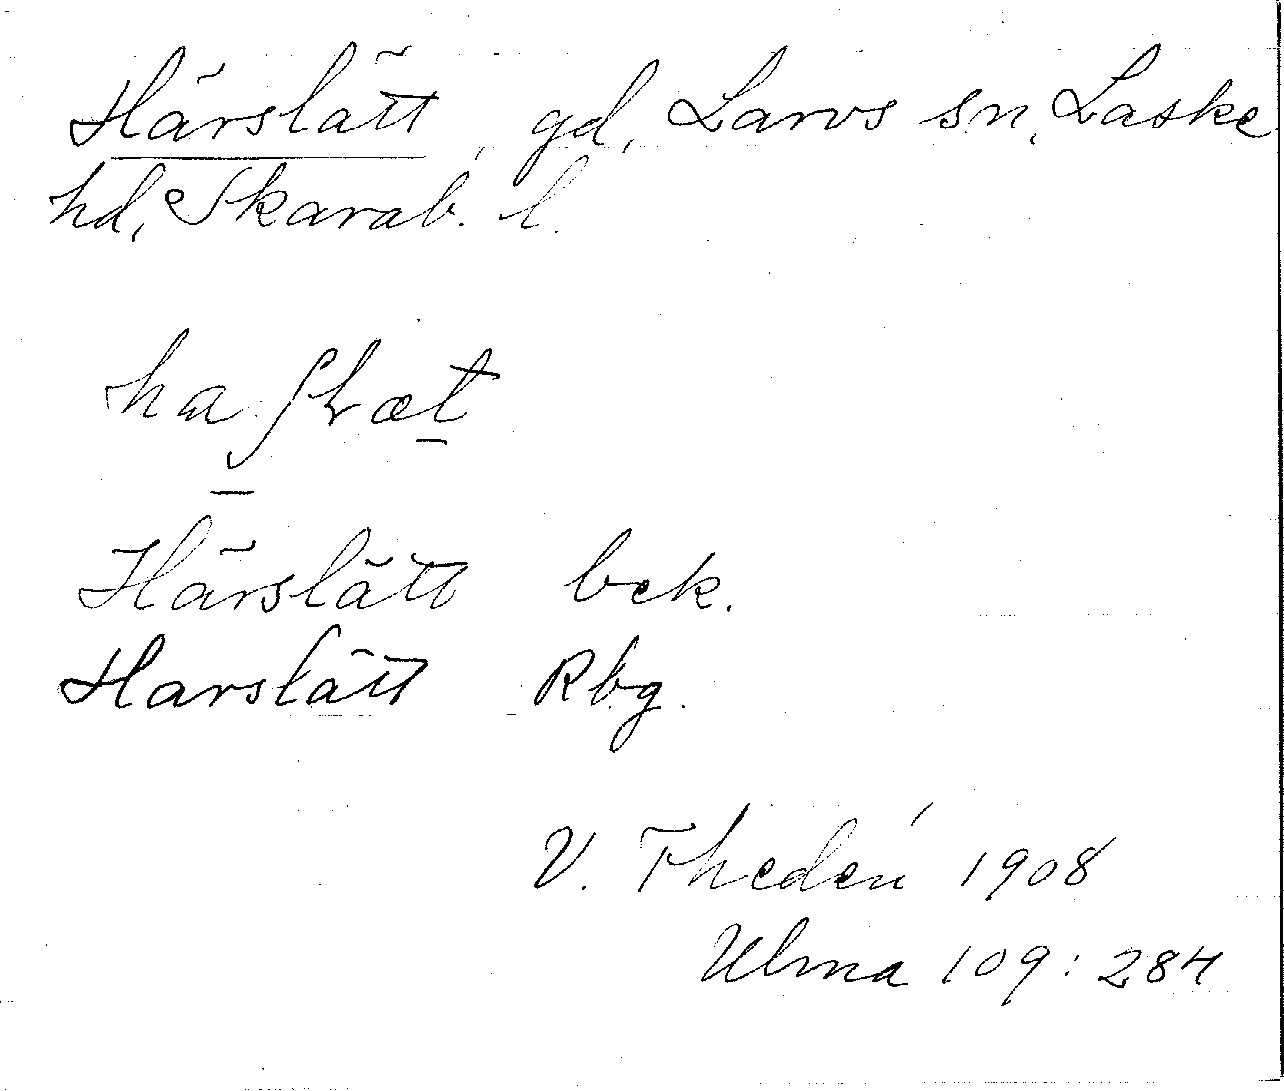 Härslätt, gd, Larvs sn, Laske
hd, Skarab. l.
Härslätt bek.
Harslätt Rbg.
V. Thedén 1908
Ulma 109:284